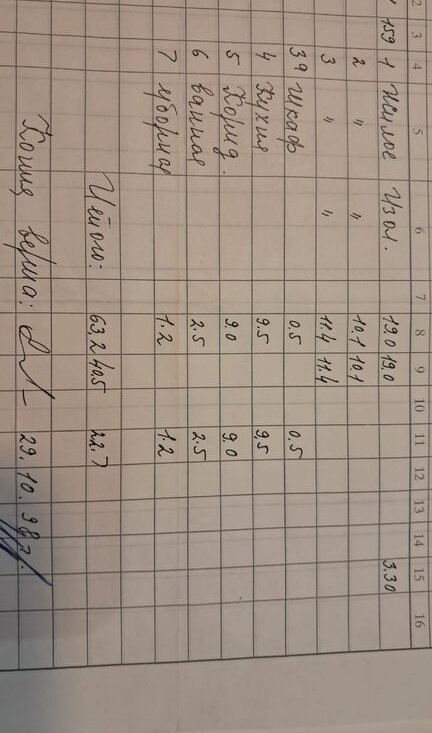 2 3 4 5 6 7 8 9 10 11 12 13 14 15 16
159 1 Жилое Изол. 19.0 19.0 3.30
2 " " 10.1 10.1
3 " " 11.4 11.4
3а Шкаф 0.5 0.5
4 Кухня 9.5 9.5
5 Корид. 9.0 9.0
6 ванная 2.5 2.5
7 уборная 1.2 1.2
Итого: 63.2 40.5 22.7
Копия верна: 29.10.98г.